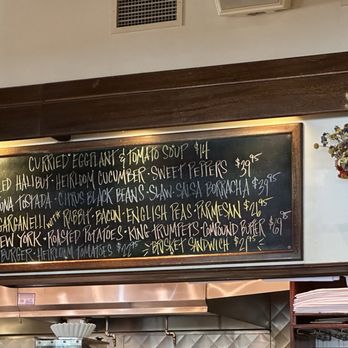 CURRIED EGGPLANT & TOMATO SOUP $14
LED HALIBUT · HEIRLOOM CUCUMBER · SWEET PEPPERS $39.95
ONA TOSTADA · CITRUS BLACK BEANS · SLAW · SALSA BORRACHA $39.95
GARGANELLI WITH RABBIT · BACON · ENGLISH PEAS · PARMESAN $26.95
NEW YORK · ROASTED POTATOES · KING TRUMPETS · COMPOUND BUTTER $69.95
BURGER · HEIRLOOM TOMATOES $22.95 BRISKET SANDWICH $21.95